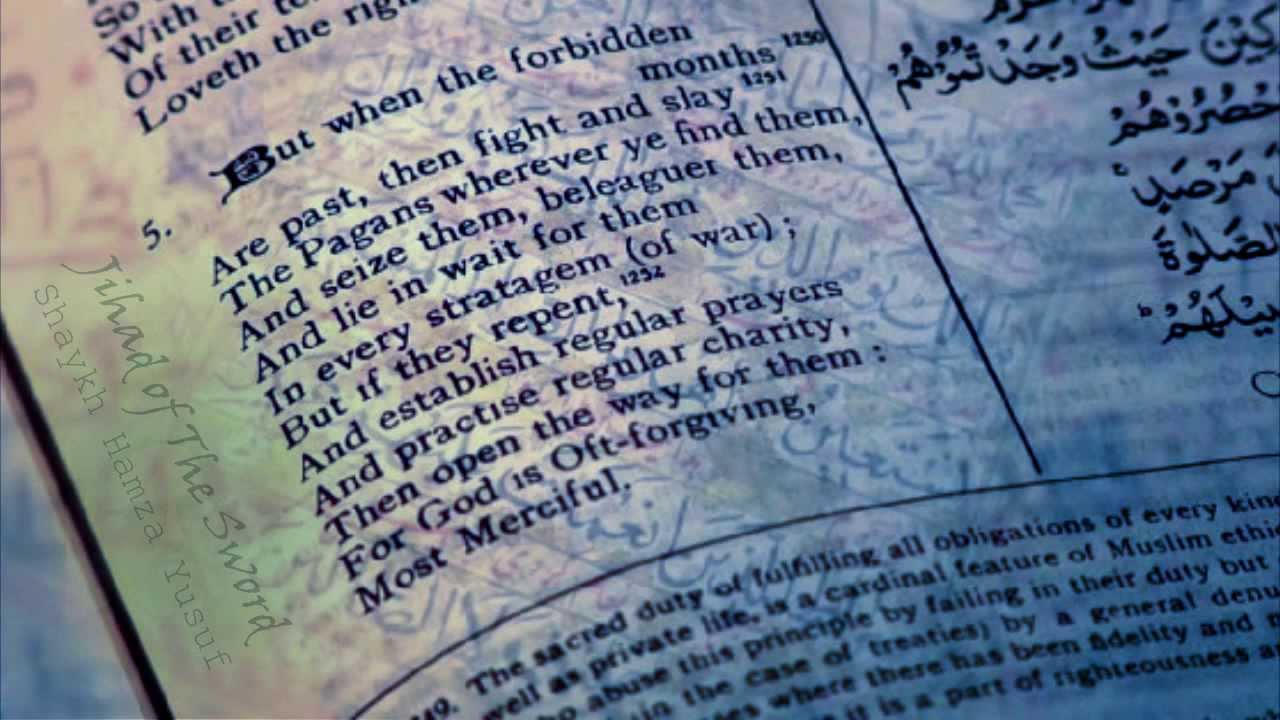 So
With
Of their
Loveth the righ
5. But when the forbidden
months 1250
Are past, then fight and slay 1251
The Pagans wherever ye find them,
And seize them, beleaguer them,
And lie in wait for them
In every stratagem (of war) ;
But if they repent, 1252
And establish regular prayers
And practise regular charity,
Then open the way for them :
For God is Oft-forgiving,
Most Merciful.
كِيْنَ حَيْثُ وَجَدْتُمُوْهُمْ
حْصُرُوْهُمْ
مَرْصَدٍ
الصَّلٰوةَ
بِيْلَهُمْ
Jihad of The Sword
Shaykh Hamza Yusuf
The sacred duty of fulfilling all obligations of every kin
well as private life, is a cardinal feature of Muslim ethi
ho abuse this principle by failing in their duty but
in the case of treaties) by a general denu
where there has been fidelity and
it is a part of righteousness